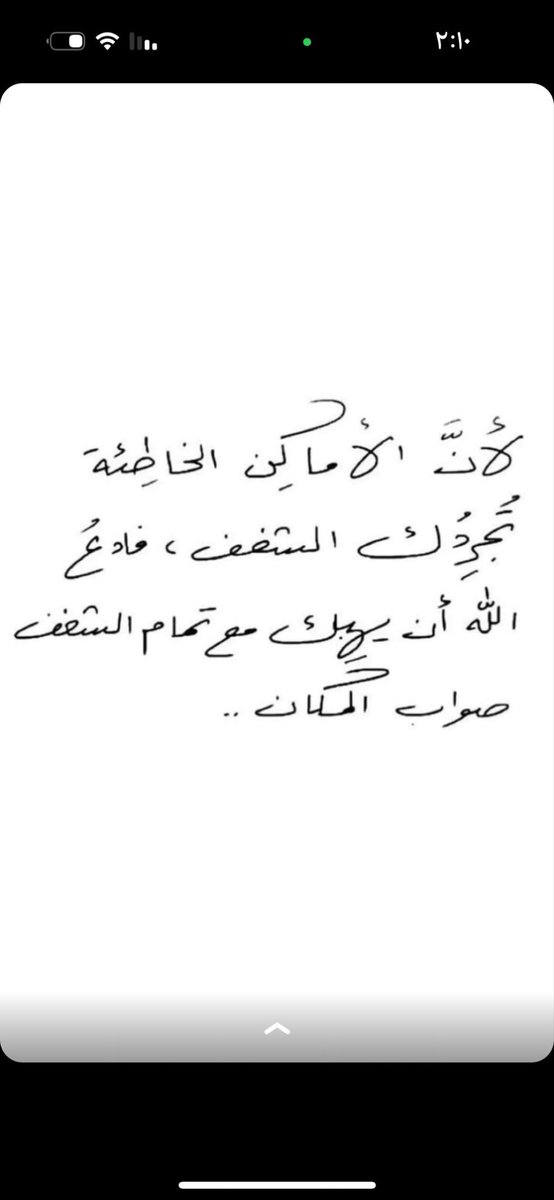 ٢:١٠
لأنَّ الأماكِن الخاطِئة
تُجرِدُك الشغف، فادعُ
الله أن يهِبك مع تمام الشغف
صواب المكان ..